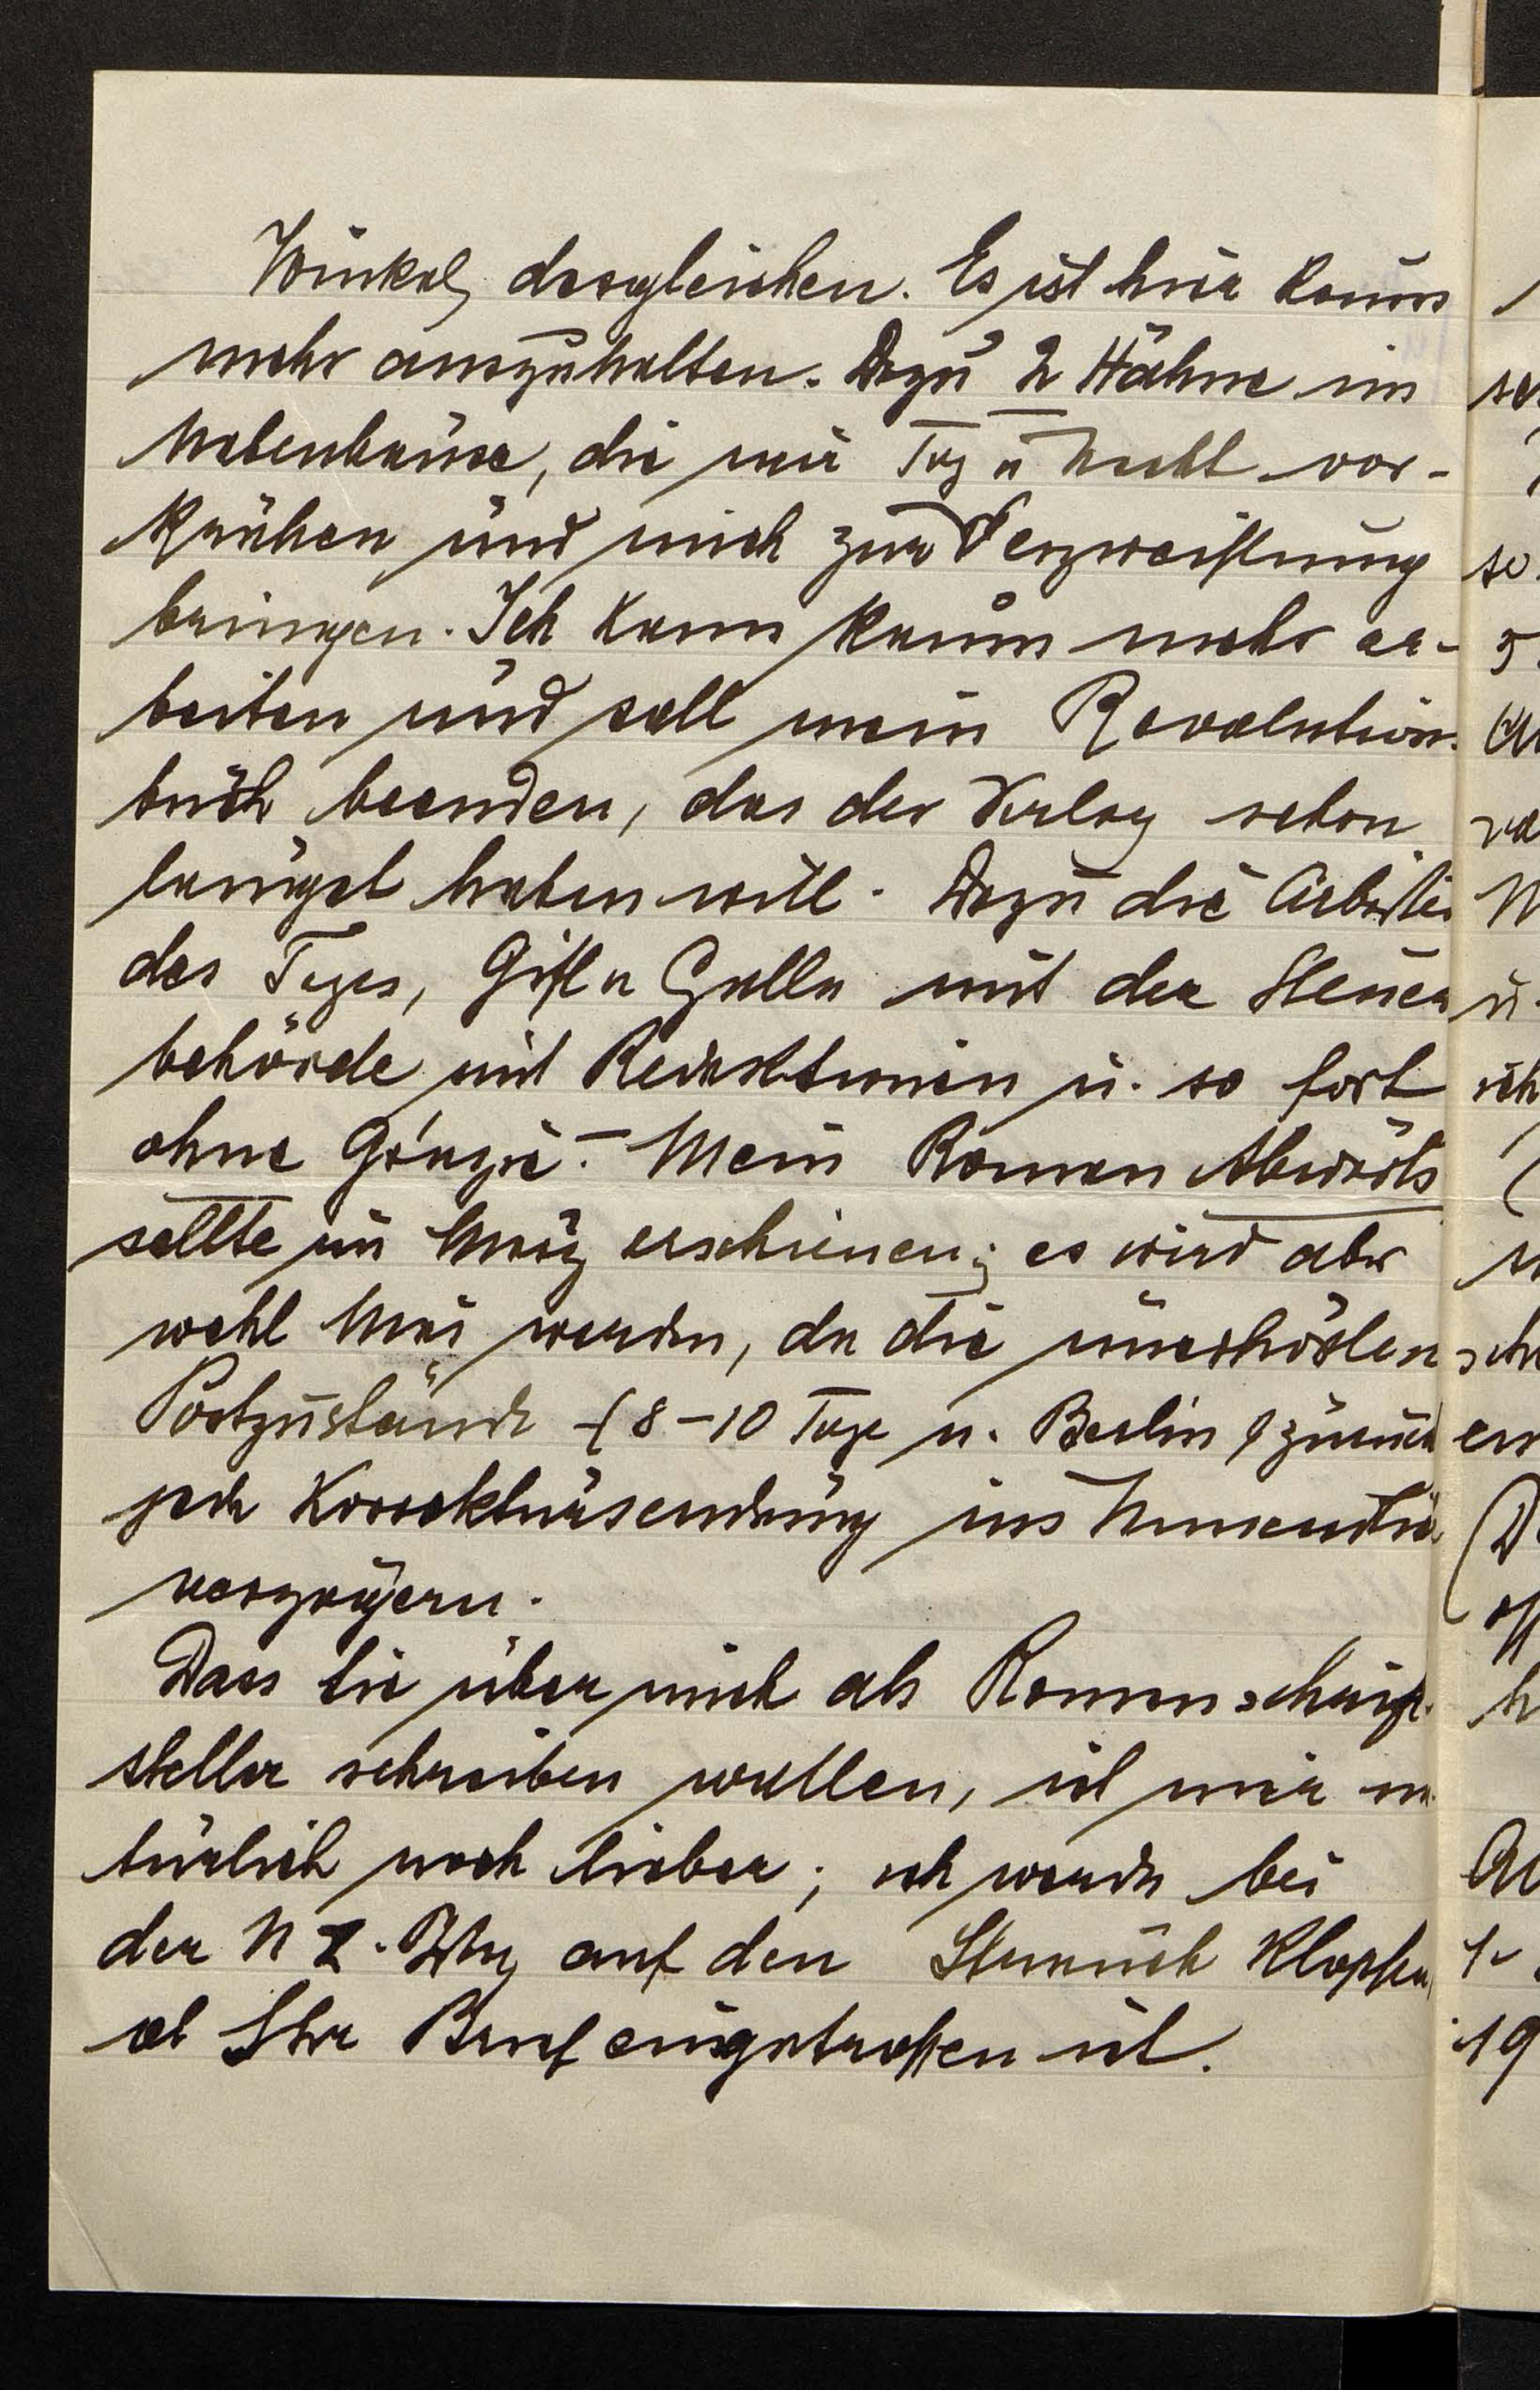 Winkel, desgleichen. Es ist hier kaum
mehr auszuhalten. Dazu 2 Hähne im
Nebenhause, die mir Tag u Nacht vor-
krähen und mich zur Verzweiflung
bringen. Ich kann kaum mehr ar-
beiten und soll mein Revolutions-
buch beenden, das der Verlag schon
längst haben will. Dazu die Arbeiten
des Tages, Gift u Galle mit der Steuer
behörde mit Redaktionen u. so fort
ohne Grazie. – Mein Roman Abwärts
sollte im März erscheinen; es wird aber
wohl Mai werden, da die unerhörten
Postzustände (8–10 Tage n. Berlin & zurück
jede Korrektursendung ins Unendliche
verzögern.
Dass Sie über mich als Romanschrift-
steller schreiben wollen, ist mir na-
türlich noch lieber; ich werde bei
der N Z. Ztg auf den Strauch klopfen,
ob Ihr Brief eingetroffen ist.